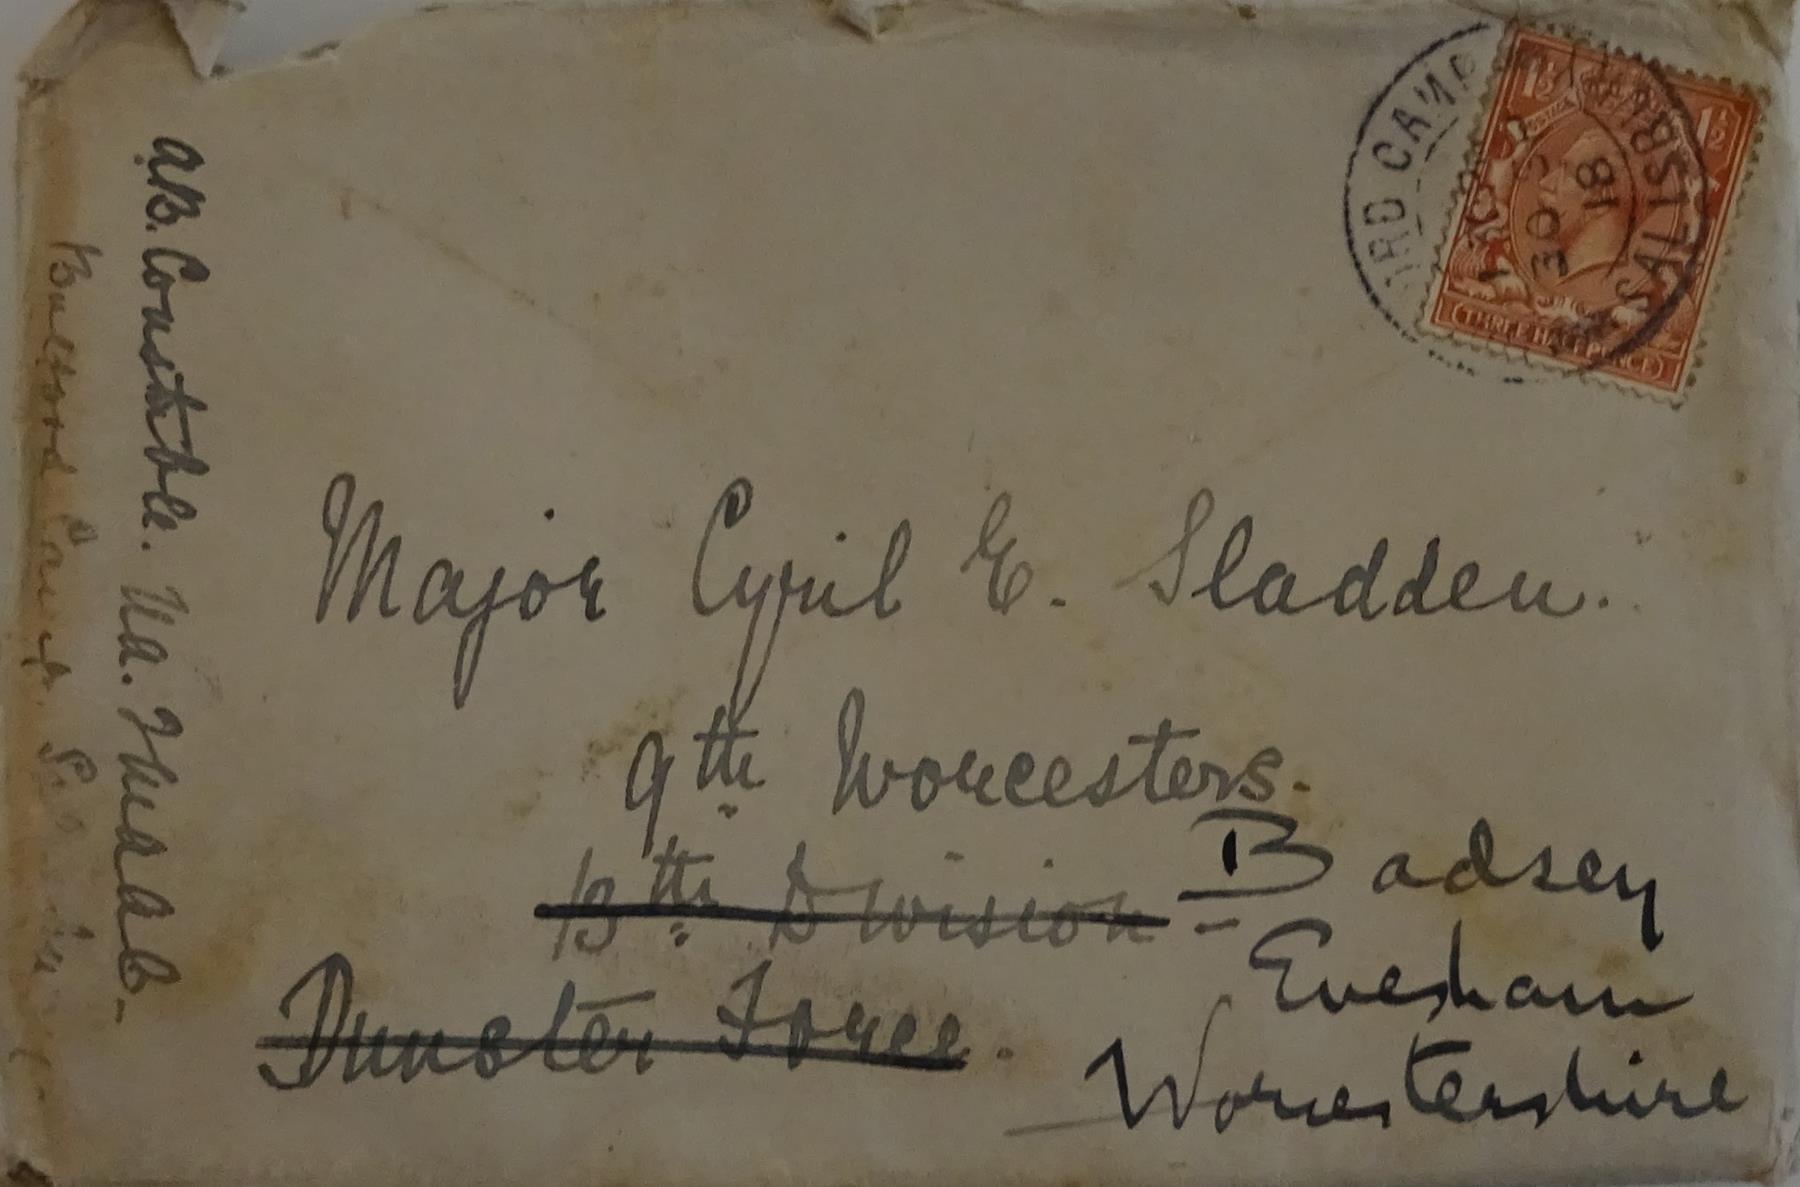 Major Cyril E. Sladden.
9th Worcesters.
13th Division -
Dunster Force.
Badsey
Evesham
Worcestershire
A.B. Constable.
Bulford Camp.
CAMP
SALISBURY
30
18
1½ 1½
POSTAGE
THREE HALFPENCE